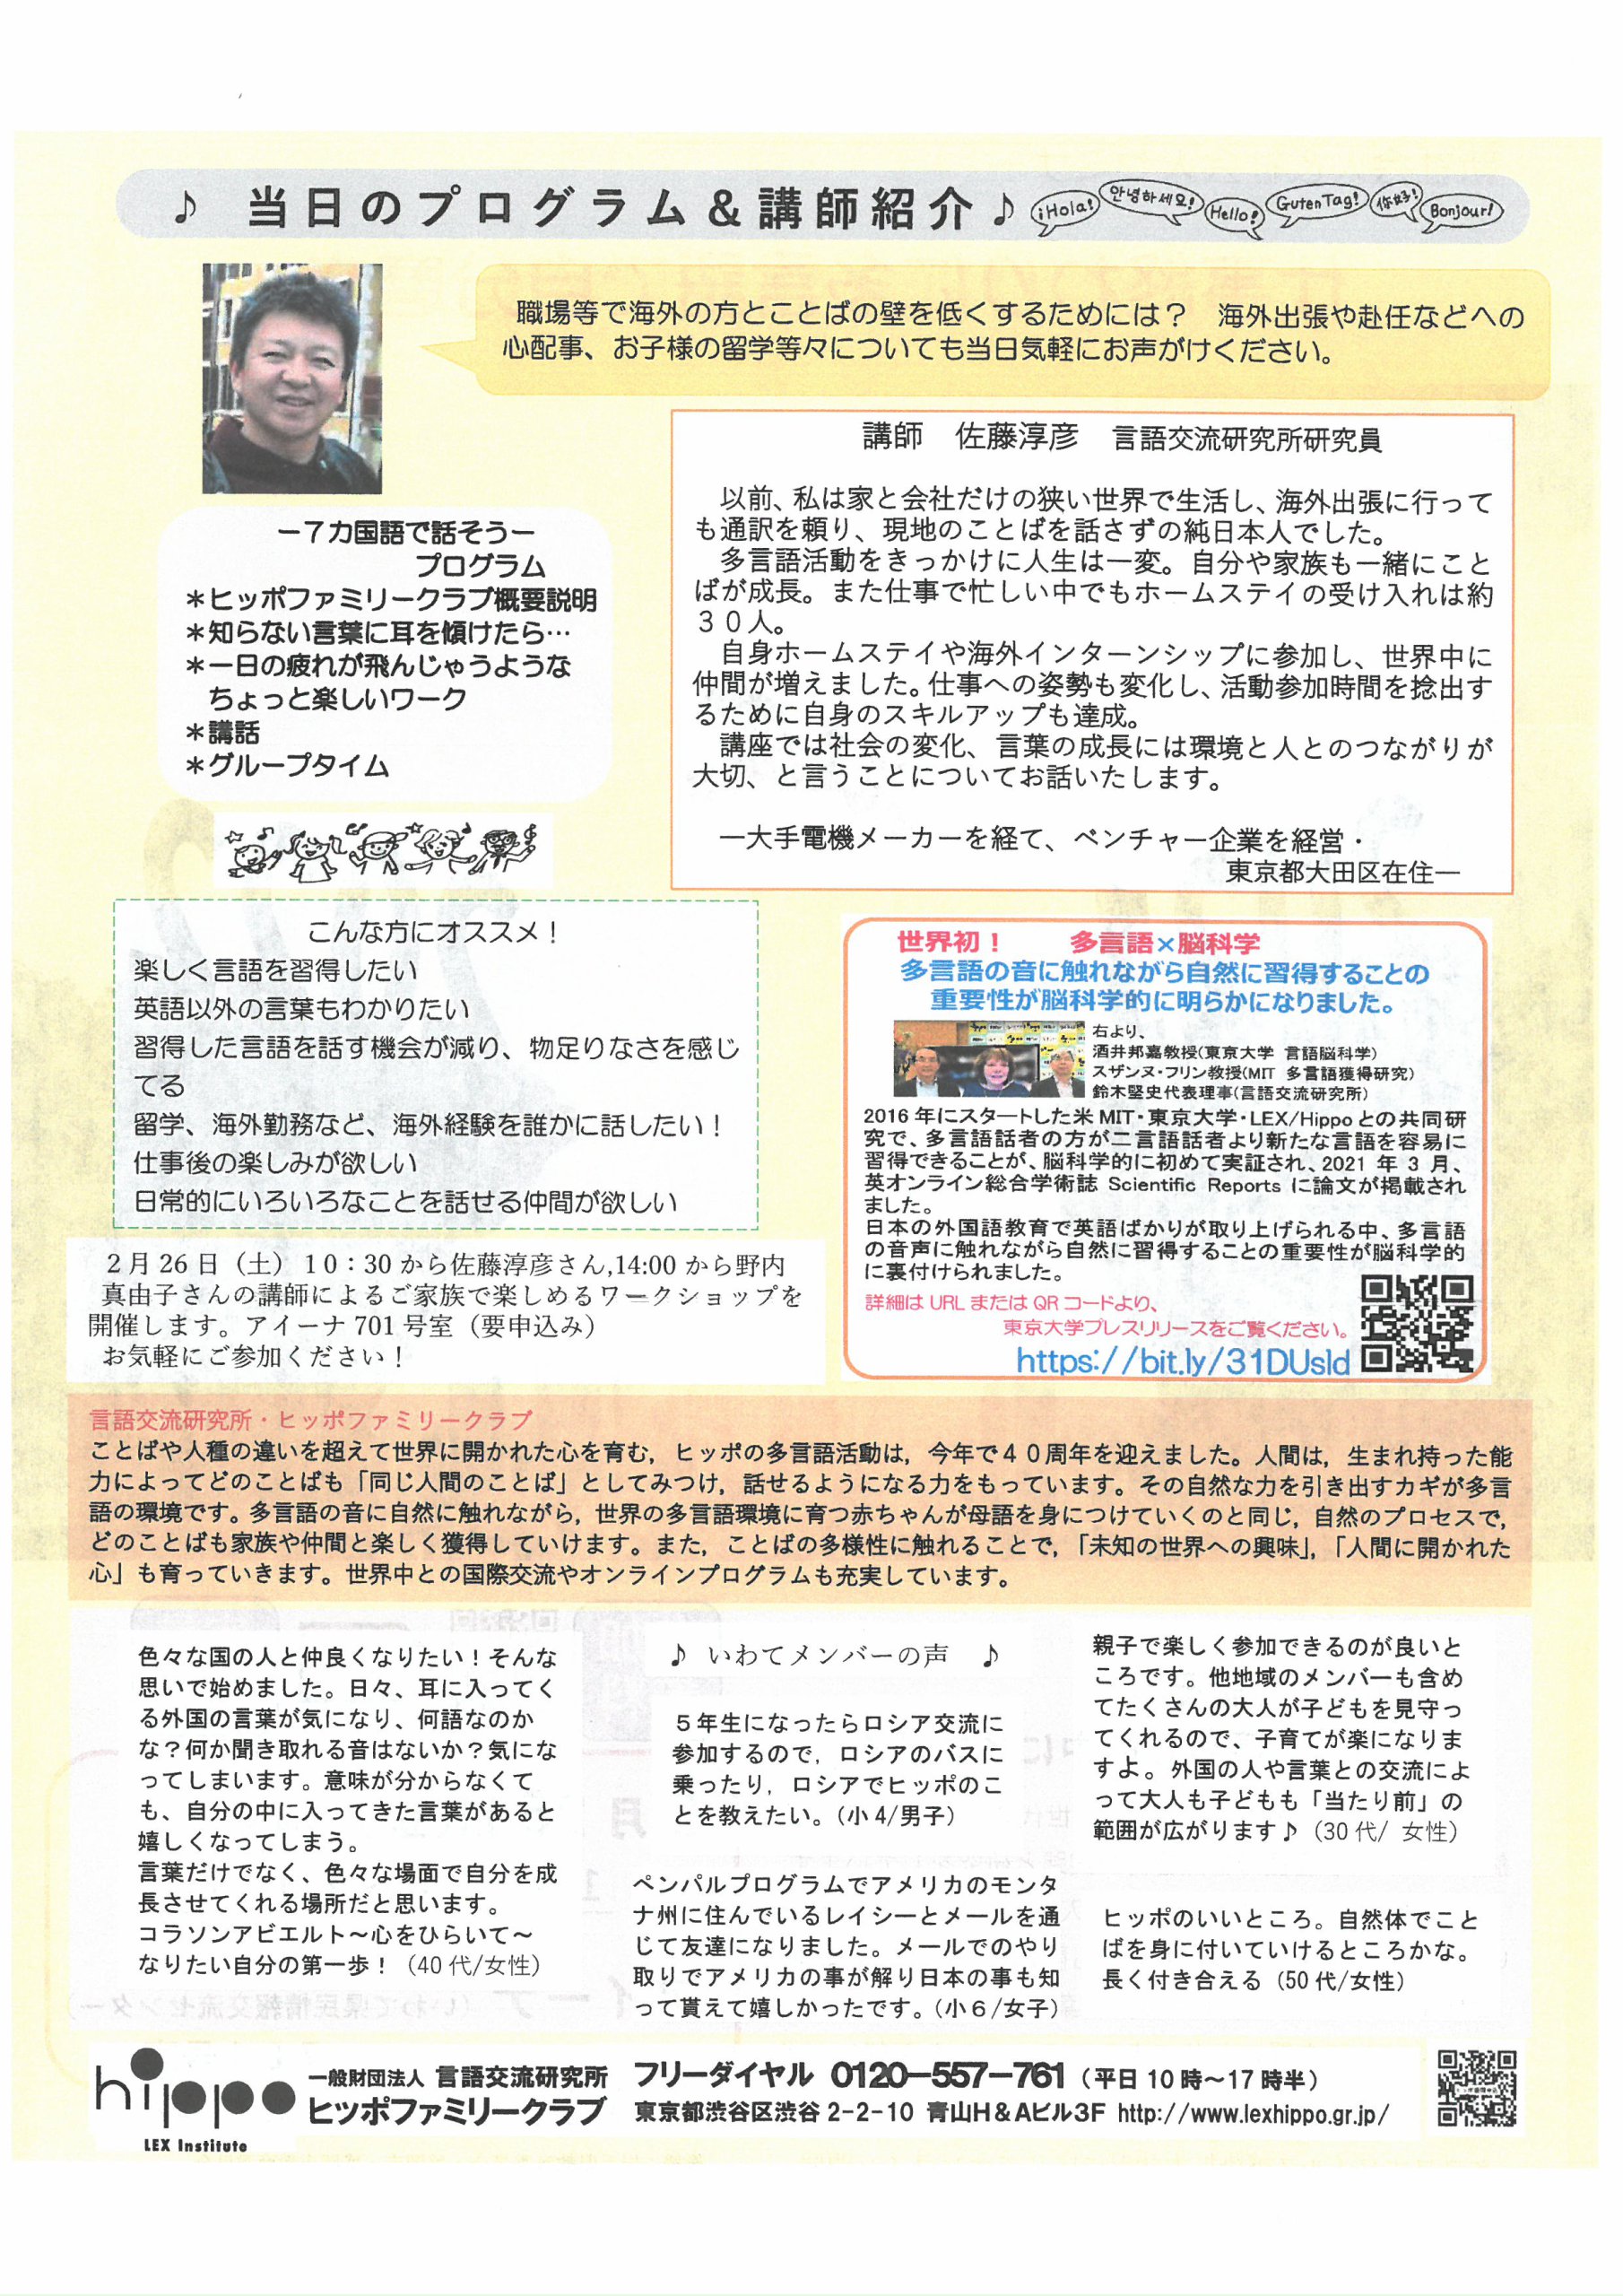 ♪ 当日のプログラム＆講師紹介♪
¡Hola!
안녕하세요!
Hello!
Guten Tag!
你好!
Bonjour!
職場等で海外の方とことばの壁を低くするためには？　海外出張や赴任などへの
心配事、お子様の留学等々についても当日気軽にお声がけください。
講師　佐藤淳彦　言語交流研究所研究員
以前、私は家と会社だけの狭い世界で生活し、海外出張に行って
も通訳を頼り、現地のことばを話さずの純日本人でした。
多言語活動をきっかけに人生は一変。自分や家族も一緒にこと
ばが成長。また仕事で忙しい中でもホームステイの受け入れは約
３０人。
自身ホームステイや海外インターンシップに参加し、世界中に
仲間が増えました。仕事への姿勢も変化し、活動参加時間を捻出す
るために自身のスキルアップも達成。
講座では社会の変化、言葉の成長には環境と人とのつながりが
大切、と言うことについてお話いたします。
―大手電機メーカーを経て、ベンチャー企業を経営・
東京都大田区在住―
－７カ国語で話そう－
プログラム
＊ヒッポファミリークラブ概要説明
＊知らない言葉に耳を傾けたら…
＊一日の疲れが飛んじゃうような
ちょっと楽しいワーク
＊講話
＊グループタイム
こんな方にオススメ！
楽しく言語を習得したい
英語以外の言葉もわかりたい
習得した言語を話す機会が減り、物足りなさを感じ
てる
留学、海外勤務など、海外経験を誰かに話したい！
仕事後の楽しみが欲しい
日常的にいろいろなことを話せる仲間が欲しい
世界初！　多言語×脳科学
多言語の音に触れながら自然に習得することの
重要性が脳科学的に明らかになりました。
右より、
酒井邦嘉教授(東京大学 言語脳科学)
スザンヌ・フリン教授(MIT 多言語獲得研究)
鈴木堅史代表理事(言語交流研究所)
2016 年にスタートした米 MIT・東京大学・LEX/Hippo との共同研
究で、多言語話者の方が二言語話者より新たな言語を容易に
習得できることが、脳科学的に初めて実証され、2021 年 3 月、
英オンライン総合学術誌 Scientific Reports に論文が掲載され
ました。
日本の外国語教育で英語ばかりが取り上げられる中、多言語
の音声に触れながら自然に習得することの重要性が脳科学的
に裏付けられました。
詳細は URL または QR コードより、
東京大学プレスリリースをご覧ください。
https://bit.ly/31DUsld
２月 26 日（土）１０：30 から佐藤淳彦さん,14:00 から野内
真由子さんの講師によるご家族で楽しめるワークショップを
開催します。アイーナ 701 号室（要申込み）
お気軽にご参加ください！
言語交流研究所・ヒッポファミリークラブ
ことばや人種の違いを超えて世界に開かれた心を育む，ヒッポの多言語活動は，今年で４０周年を迎えました。人間は，生まれ持った能
力によってどのことばも「同じ人間のことば」としてみつけ，話せるようになる力をもっています。その自然な力を引き出すカギが多言
語の環境です。多言語の音に自然に触れながら，世界の多言語環境に育つ赤ちゃんが母語を身につけていくのと同じ，自然のプロセスで，
どのことばも家族や仲間と楽しく獲得していけます。また，ことばの多様性に触れることで，「未知の世界への興味」，「人間に開かれた
心」も育っていきます。世界中との国際交流やオンラインプログラムも充実しています。
色々な国の人と仲良くなりたい！そんな
思いで始めました。日々、耳に入ってく
る外国の言葉が気になり、何語なのか
な？何か聞き取れる音はないか？気にな
ってしまいます。意味が分からなくて
も、自分の中に入ってきた言葉があると
嬉しくなってしまう。
言葉だけでなく、色々な場面で自分を成
長させてくれる場所だと思います。
コラソンアビエルト～心をひらいて～
なりたい自分の第一歩！（40 代/女性）
♪ いわてメンバーの声 ♪
５年生になったらロシア交流に
参加するので，ロシアのバスに
乗ったり，ロシアでヒッポのこ
とを教えたい。（小 4/男子）
ペンパルプログラムでアメリカのモンタ
ナ州に住んでいるレイシーとメールを通
じて友達になりました。メールでのやり
取りでアメリカの事が解り日本の事も知
って貰えて嬉しかったです。（小６/女子）
親子で楽しく参加できるのが良いと
ころです。他地域のメンバーも含め
てたくさんの大人が子どもを見守っ
てくれるので、子育てが楽になりま
すよ。外国の人や言葉との交流によ
って大人も子どもも「当たり前」の
範囲が広がります♪（30 代/ 女性）
ヒッポのいいところ。自然体でこと
ばを身に付いていけるところかな。
長く付き合える（50 代/女性）
hippo
LEX Institute
一般財団法人 言語交流研究所
ヒッポファミリークラブ
フリーダイヤル 0120-557-761（平日 10 時～17 時半）
東京都渋谷区渋谷 2-2-10 青山H＆Aビル3F http://www.lexhippo.gr.jp/